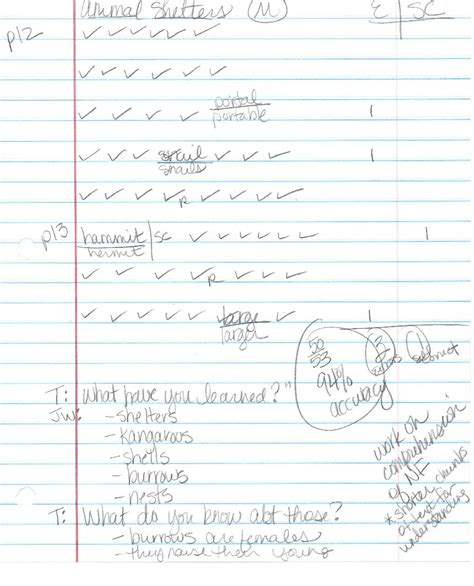 Animal Shelters (M) E | SC
p12 ✓ ✓ ✓ ✓ ✓ ✓
✓ ✓ ✓ ✓ ✓ ✓
✓ ✓ ✓ ✓ portal 1
portable
✓ ✓ snail ✓ ✓ ✓ 1
snails
✓ ✓ ✓ ✓ R ✓ ✓ ✓
p13 hammit | SC ✓ ✓ ✓ ✓ ✓ ✓ 1
hermit
✓ ✓ ✓ ✓ R ✓ ✓ ✓
✓ ✓ ✓ ✓ large ✓ 1
larger
50
53
94%
accuracy
3
errors
1
selfcorrect
T: What have you learned?"
JW: - shelters
- kangaroos
- shells
- burrows
- nests
T: What do you know abt those?
- burrows are females
- they raise their young
work on
comprehension
of NF
* shorter chunks
of text for
understanding